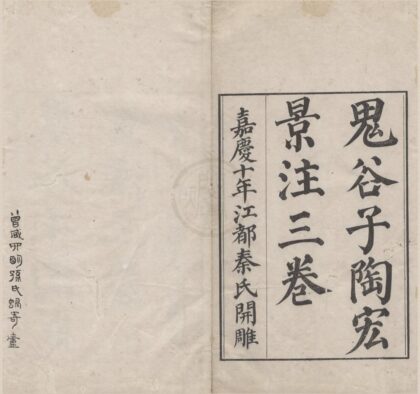 鬼谷子陶宏
景注三卷
嘉慶十年江都秦氏開雕
曾藏四明孫氏蝸寄廬